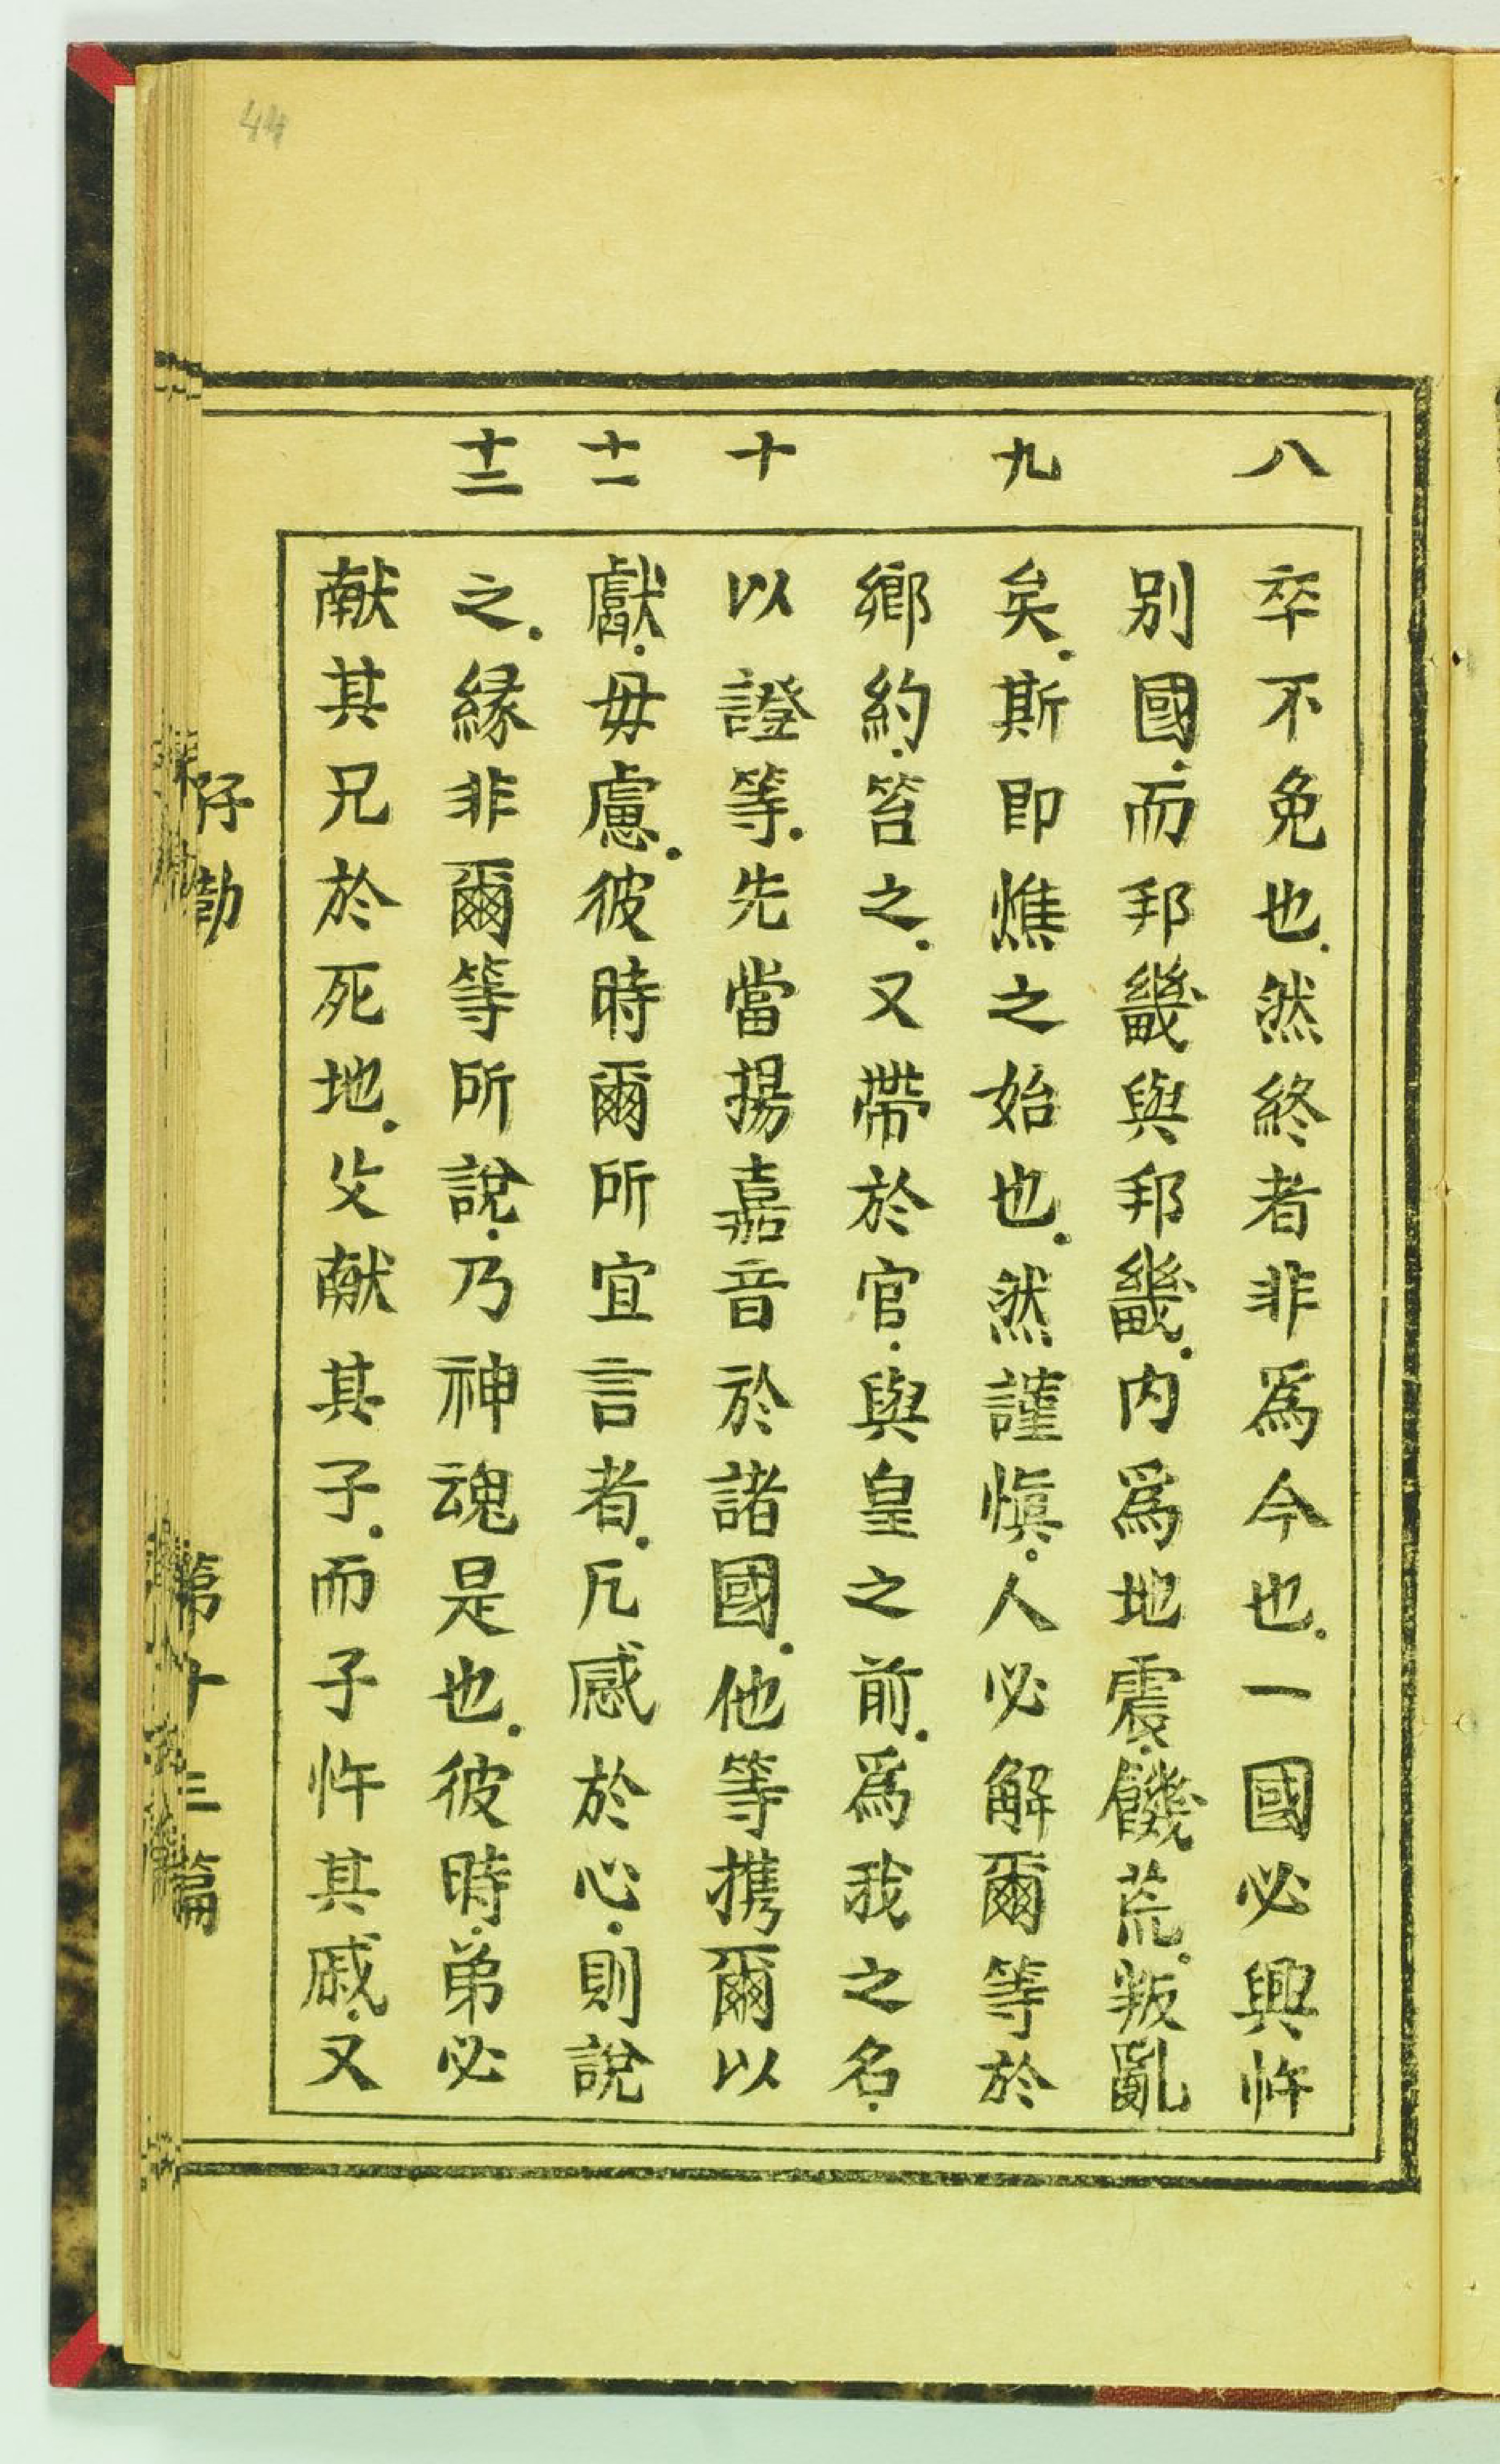 44
八
九
十
十一
十二
卒不免也.然終者非爲今也.一國必興忤
别國.而邦畿與邦畿.内爲地震.饑荒.叛亂
矣.斯即燋之始也.然謹愼.人必解爾等於
鄉約.笞之.又帶於官.與皇之前.爲我之名.
以證等.先當揚嘉音於諸國.他等携爾以
獻.毋慮.彼時爾所宜言者.凡感於心.則說
之.緣非爾等所說.乃神魂是也.彼時.弟必
献其兄於死地.父献其子.而子忤其戚.又
第十三篇